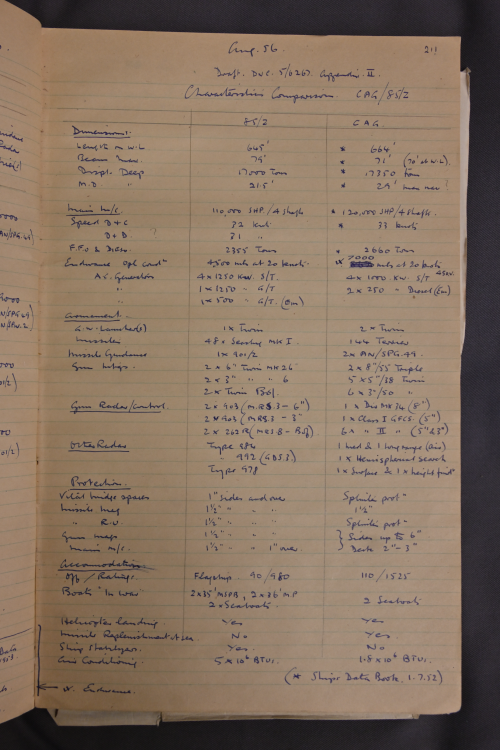 Aug. 56. 211
Draft. DNC. 5/0267. Appendix. II.
Characteristics Comparison. CAG/85/Z
85/Z CAG.
Dimensions:
Length m W.L 645' * 664'
Beam max. 79' * 71' (70' at W.L.)
Displ. Deep 17000 Tons * 17350 Tons
M.D " 21.5' * 29' max nav
Main m/c. 110,000 SHP/4 shafts * 120,000 SHP/4 shafts
Speed D+C 32 knots * 33 knots
D+D 31 "
F.F.O & Diesel 2355 Tons * 2660 Tons
Endurance opl condn 4500 mls at 20 knots * 7000 mls at 20 knots
A.C. Generators 4 x 1250 KW. S/T. 4 x 1000 KW. S/T. 450v.
" 1 x 1250 " G/T 2 x 250 " Diesel (Em)
" 1 x 500 " G/T (Em)
Armament.
G.W. Launcher(s) 1 x Twin 2 x Twin
Missiles 48 x Seaslug MK I. 144 Terrier
Missile Guidance 1 x 901/2 2 x AN/SPG.49.
Gun Mtgs. 2 x 6" Twin MK 26 2 x 8"/55 Triple
2 x 3" " " 6 5 x 5"/38 Twin
2 x Twin Bof. 6 x 3"/50 "
Gun Radar/Control. 2 x 903 (M.R.S. 3 - 6") 1 x Dir MK 34 (8")
2 x 903 (M.R.S. 3 - 3") 1 x Class I GFCS. (5")
2 x 262R (MRS. 8 - Bof) 6 x " II " (5" & 3")
Other Radar Type 984 1 head & 1 long range (Air)
" 992 (GDS.3) 1 x Hemispherical search
Type 978 1 x Surface & 1 x height find
Protection.
Vital bridge spaces 1" sides and over Splinter protn
Missile Mag 1½" " " " 1½"
" R.U. 1½" " " " Splinter protn
Gun mags 1½" " " " } Sides up to 6"
Main m/c. 1½" " " 1" over } Deck 2"-3"
Accomodation
Off/Ratings. Flagship 90/980 110/1525
Boats "In War" 2 x 35' MSPB, 2 x 36' MP
2 x Seaboats 2 Seaboats
Helicopter landing. Yes Yes
Missile Replenishment at sea. No Yes.
Ship Stabilizers. Yes. No
Air Conditioning. 5 x 10⁶ BTUs. 1.8 x 10⁶ BTUs.
(* Ships Data Book. 1.7.52)
Endurance.